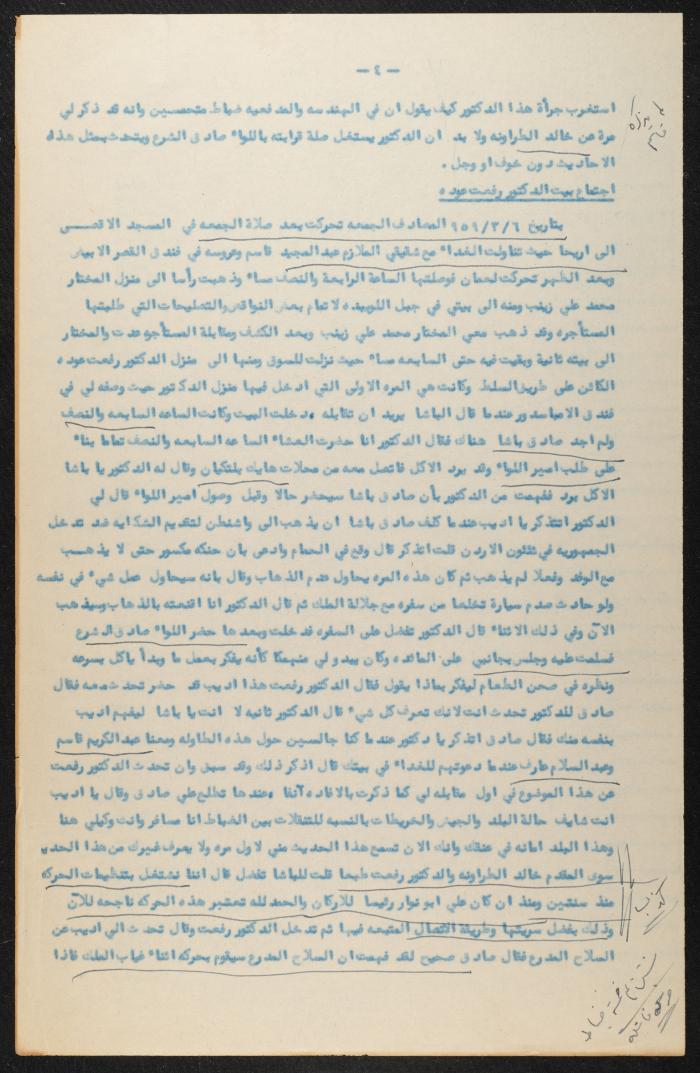 - ٤ -
استغرب جرأة هذا الدكتور كيف يقول ان في الهندسه والمدفعيه ضباط متحمسين وانه قد ذكر لي
مرة عن خالد الطراونه ولا بد ان الدكتور يستغل صلة قرابته باللواء صادق الشرع ويتحدث بمثل هذه
الاحاديث دون خوف او وجل .
اجتماع بيت الدكتور رفعت عوده
بتاريخ ٩٥٩/٣/٦ المصادف الجمعه تحركت بعد صلاة الجمعه في المسجد الاقصى
الى اريحا حيث تناولت الغداء مع شقيقي الملازم عبد المجيد قاسم وعروسه في فندق القصر الابيض
وبعد الظهر تحركت لعمان فوصلتها الساعة الرابعة والنصف مساء وذهبت رأسا الى منزل المختار
محمد علي زينب ومنه الى بيتي في جبل اللويبده لاتمام بعض النواقص والتصليحات التي طلبتها
المستأجره وقد ذهب معي المختار محمد علي زينب وبعد الكشف ومقابلة المستأجره عدت والمختار
الى بيته ثانية وبقيت فيه حتى السابعه مساء حيث نزلت للسوق ومنها الى منزل الدكتور رفعت عوده
الكائن على طريق السلط وكانت هي المره الاولى التي ادخل فيها منزل الدكتور حيث وصفه لي في
فندق الامباسدور عندما قال الباشا يريد ان تقابله ، دخلت البيت وكانت الساعه السابعه والنصف
ولم اجد صادق باشا هناك فقال الدكتور انا حضرت العشاء الساعه السابعه والنصف تماما بناء
على طلب امير اللواء وقد برد الاكل فاتصل معه من محلات هايك بلتكيان وقال له الدكتور يا باشا
الاكل برد ففهمت من الدكتور بأن صادق باشا سيحضر حالا وقبل وصول امير اللواء قال لي
الدكتور اتتذكر يا اديب عندما كلف صادق باشا ان يذهب الى واشنطن لتقديم الشكايه ضد تدخل
الجمهوريه في شئون الاردن قلت اتذكر قال وقع في الحمام وادعى بان حنكه مكسور حتى لا يذهب
مع الوفد وفعلا لم يذهب ثم كان هذه المره يحاول عدم الذهاب وقال بانه سيحاول عمل شيء في نفسه
ولو حادث صدم سيارة تخلصا من سفره مع جلالة الملك ثم قال الدكتور انا اقنعته بالذهاب وسيذهب
الآن وفي ذلك الاثناء قال الدكتور تفضل على السفره فدخلت وبعدها حضر اللواء صادق الشرع
فسلمت عليه وجلس بجانبي على المائده وكان يبدو لي منهمكا كأنه يفكر بعمل ما وبدأ يأكل بسرعه
ونظره في صحن الطعام ليفكر بماذا يقول فقال الدكتور رفعت هذا اديب قد حضر تحدث معه فقال
صادق للدكتور تحدث انت لانك تعرف كل شيء قال الدكتور ثانيه لا انت يا باشا ليفهم اديب
بنفسه منك فقال صادق اتذكر يا دكتور عندما كنا جالسين حول هذه الطاوله ومعنا عبد الكريم قاسم
وعبد السلام عارف عندما دعوتهم للغداء في بيتك قال اذكر ذلك وقد سبق وان تحدث الدكتور رفعت
عن هذا الموضوع في اول مقابله لي كما ذكرت بالافاده آنفا ، عندها تطلع علي صادق وقال يا اديب
انت شايف حالة البلد والجيش والخربطات بالنسبه للتنقلات بين الضباط انا مسافر وانت وكيلي هنا
وهذا البلد امانه في عنقك وانك الان تسمع هذا الحديث مني لاول مره ولا يعرف غيرك من هذا الحديث
سوى المقدم خالد الطراونه والدكتور رفعت طبعا قلت للباشا تفضل قال اننا نشتغل بتنظيمات الحركه
منذ سنتين ومنذ ان كان علي ابو نوار رئيسا للاركان والحمد لله تعتبر هذه الحركه ناجحه للآن
وذلك بفضل سريتها وطريقة الاتصال المتبعه فيها ثم تدخل الدكتور رفعت وقال تحدث الى اديب عن
السلاح المدرع فقال صادق صحيح لقد فهمت ان السلاح المدرع سيقوم بحركه اثناء غياب الملك فاذا